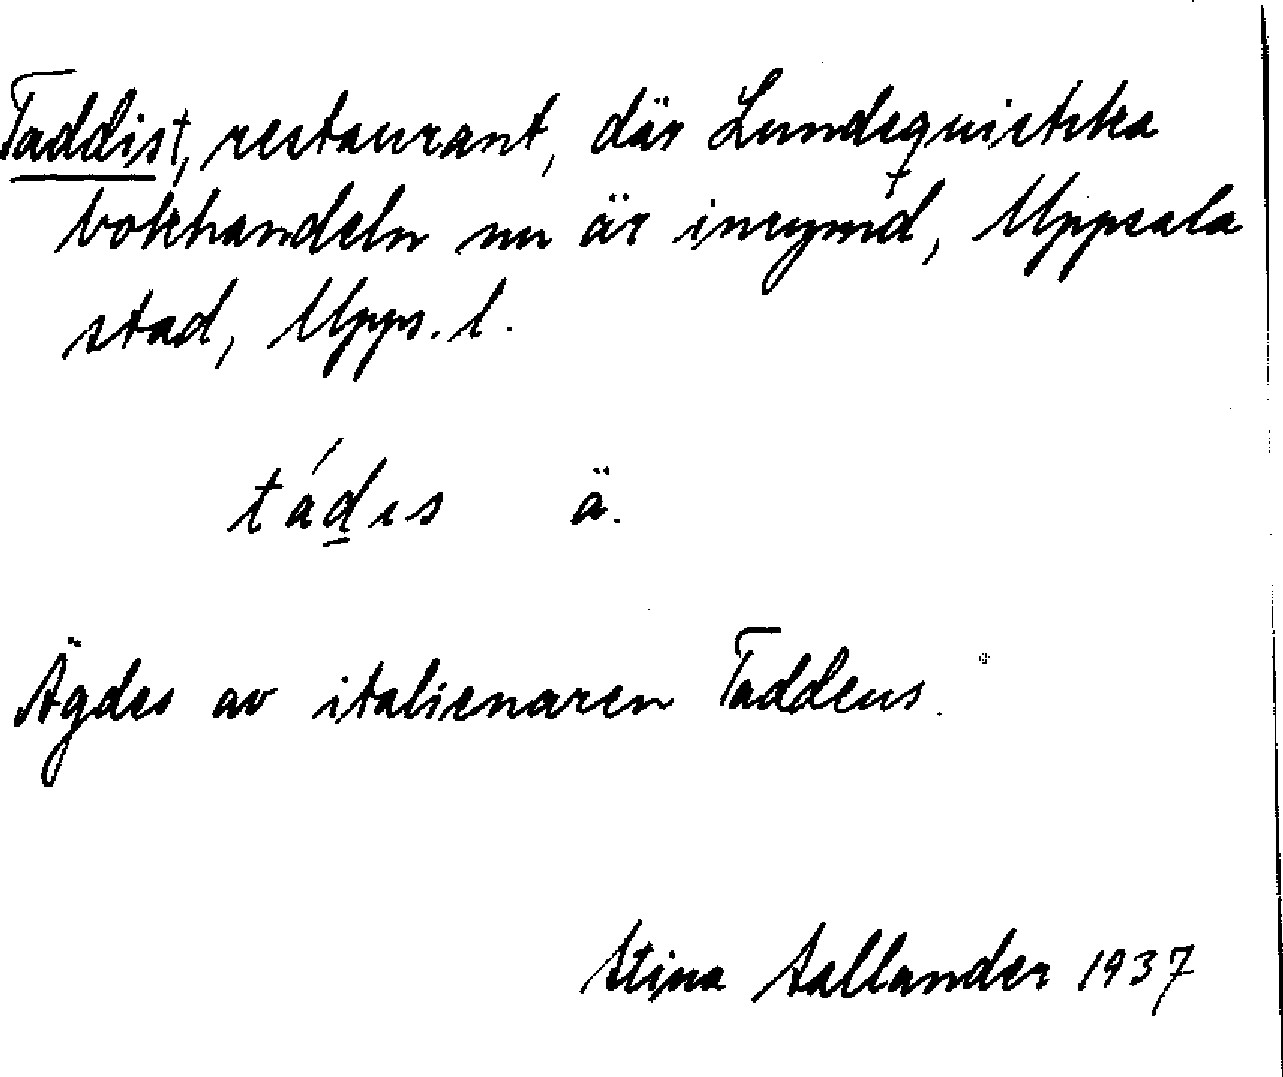 Taddis†, restaurant, där Lundequistska
bokhandeln nu är inrymd, Uppsala
stad, Upps. l.
tád̲ıs ä.
Ägdes av italienaren Taddeus.
Stina Sallander 1937